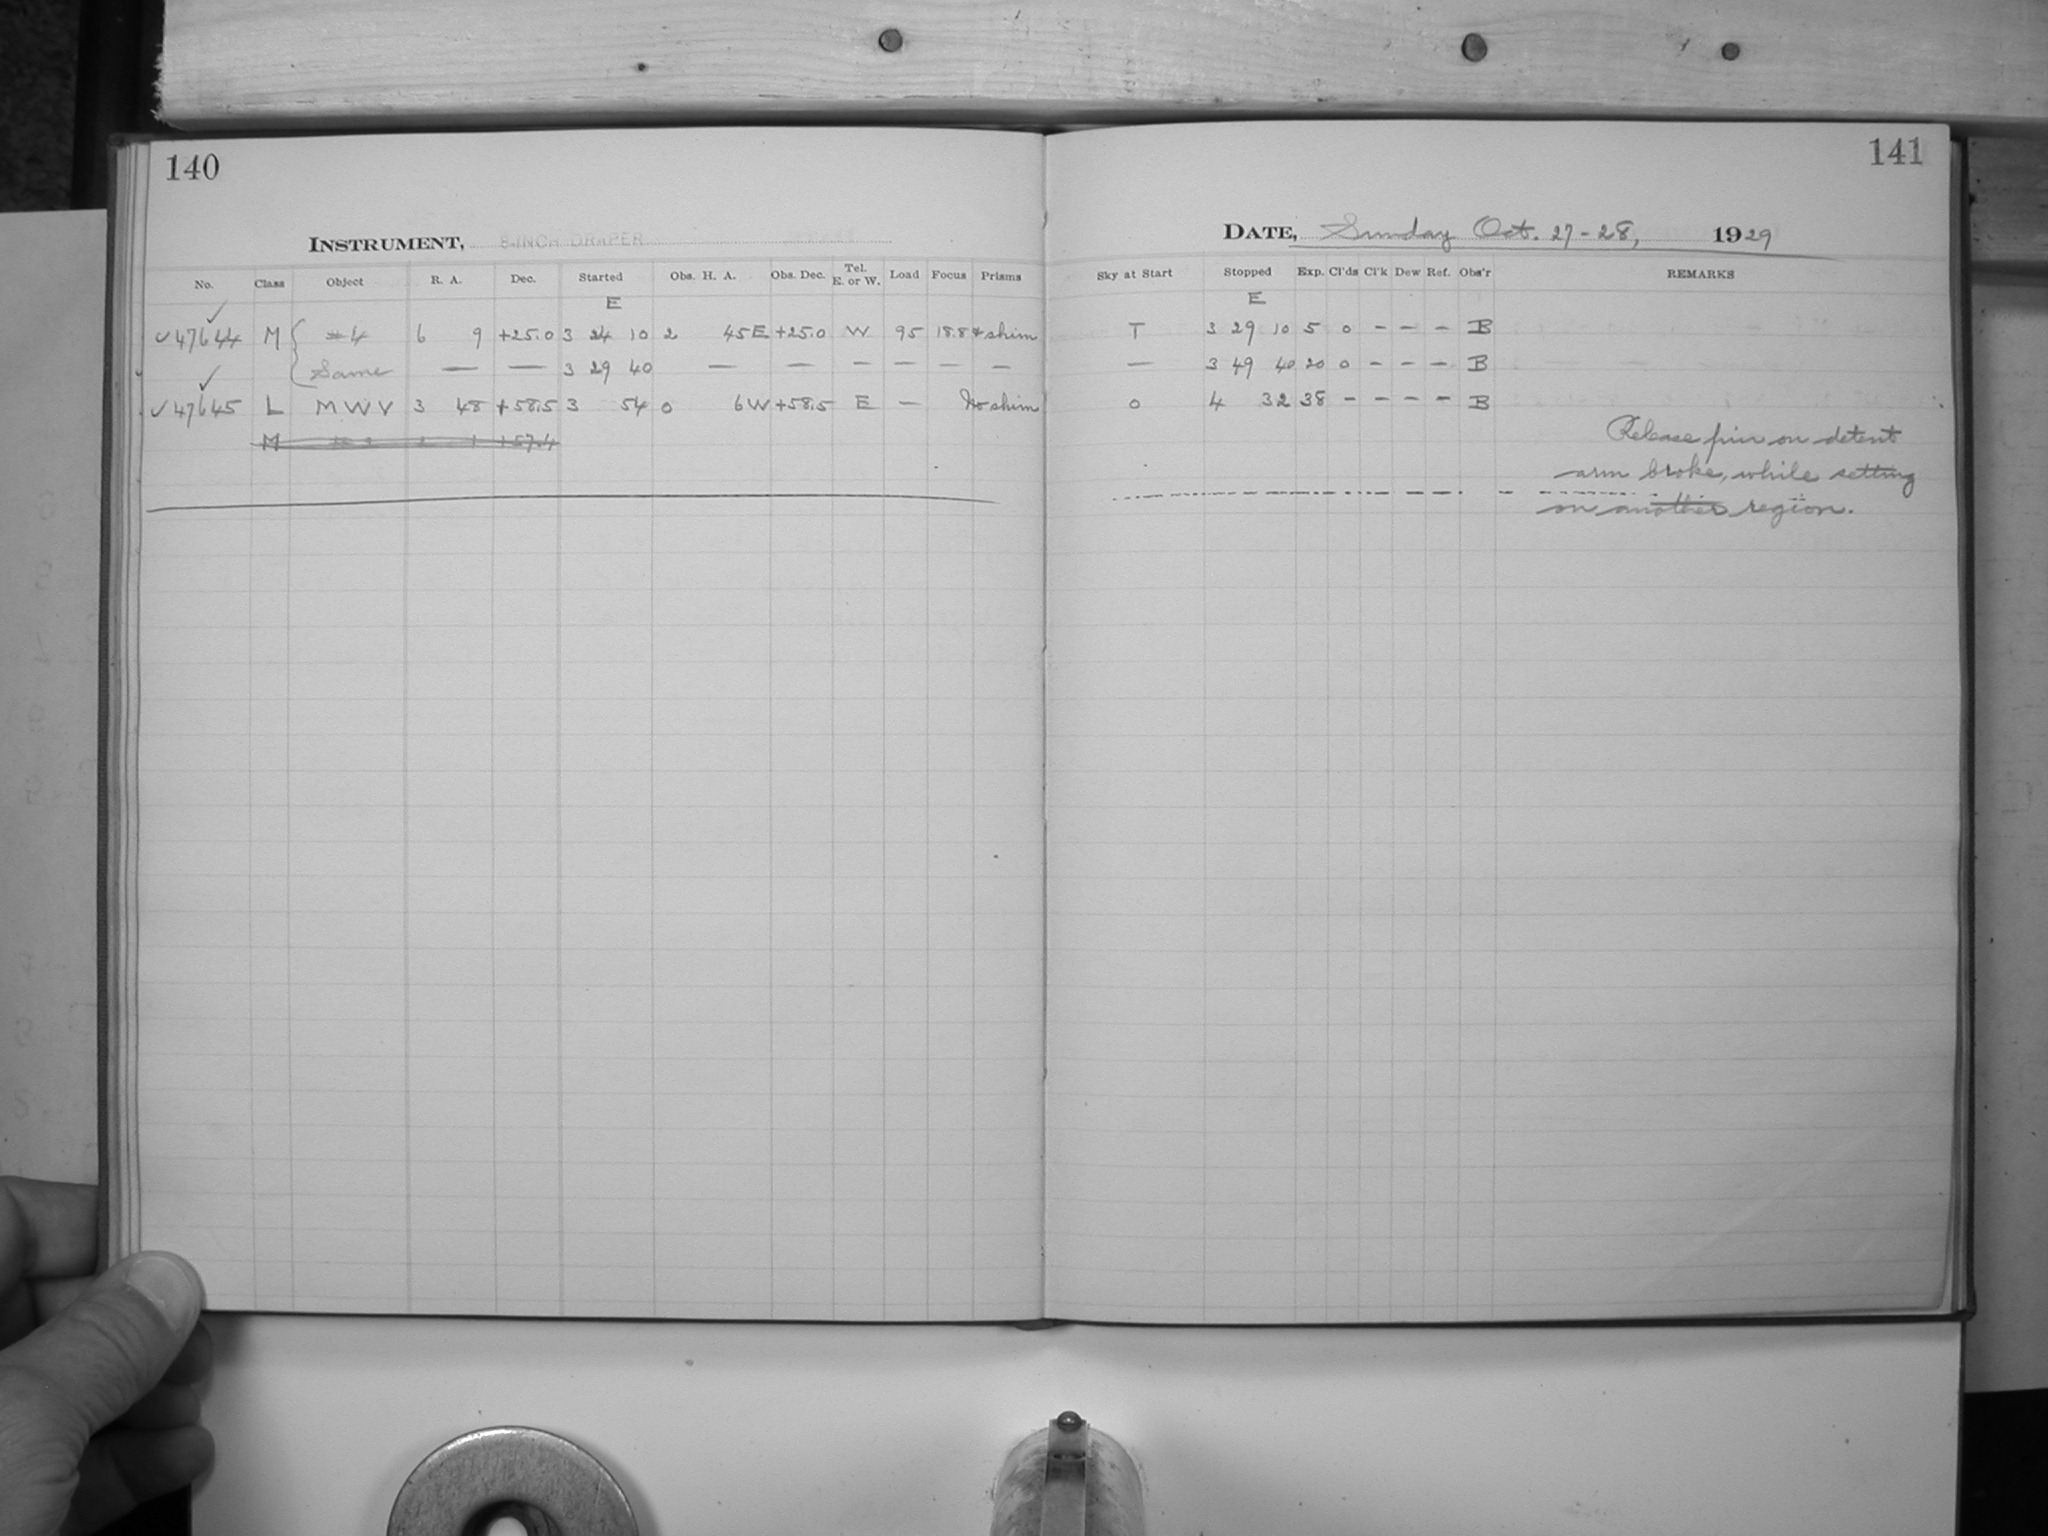 140
INSTRUMENT, 8-INCH DRAPER
No. Class Object R. A. Dec. Started Obs. H. A. Obs. Dec. Tel. E. or W. Load Focus Prisms
E
✓47644 M #4 6 9 +25.0 3 24 10 2 45E +25.0 W 95 18.8 + shim
Same — — 3 29 40 — — — — — —
✓47645 L MWV 3 48 +58.5 3 54 0 6W +58.5 E — No shim
M +57.4
141
DATE, Sunday Oct. 27-28, 1929
Sky at Start Stopped Exp. Cl'ds Cl'k Dew Ref. Obs'r REMARKS
E
T 3 29 10 5 0 – – – B
— 3 49 40 20 0 – – – B
0 4 32 38 – – – – B
Release pin on detent
arm broke, while setting
on another region.